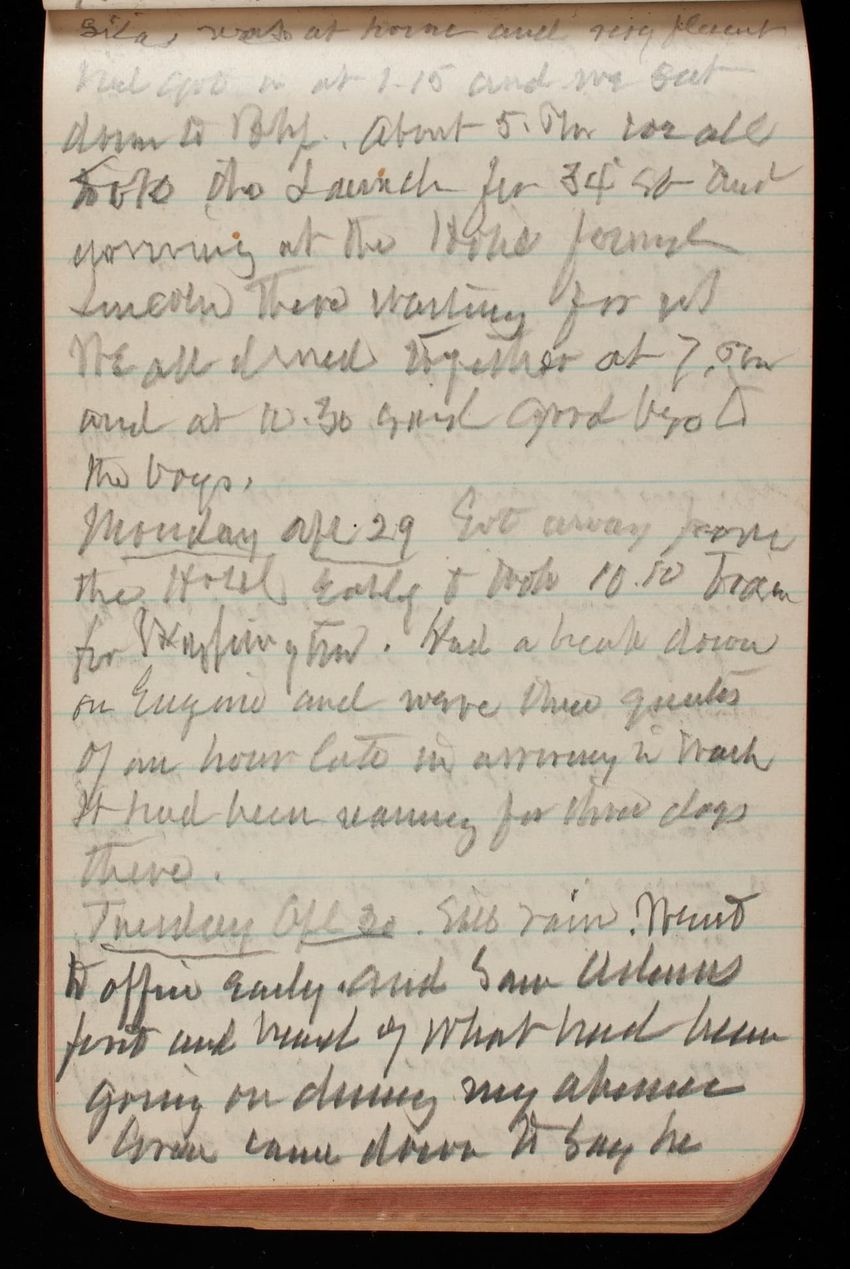 was at home and very pleasant
had got in at 1.15 and we sat
down to . About 5. PM we all
took the Launch for 34 St and
at the Hotel found
Lincoln there waiting for us
We all dined together at 7. PM
and at 10.30 said Good bye to
the boys.
Monday Apl. 29 Got away from
the Hotel Early & took 10.10 Train
for Washington. Had a break down
on Engine and were three quarters
of an hour late in arriving in Wash
It had been raining for three days
there.
Tuesday Apl 30. Still rain. Went
to office early. and Saw Adams
first and heard of what had been
going on during my absence
came down to say he